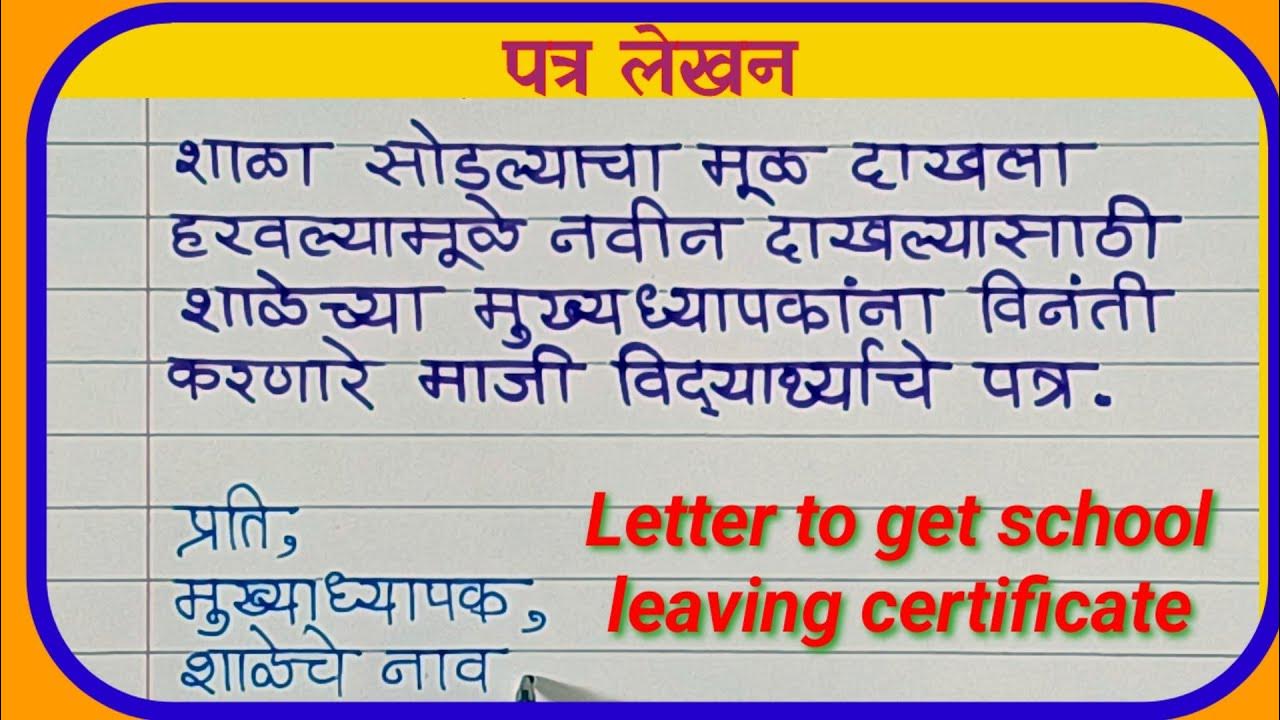 पत्र लेखन
शाळा सोड्ल्याचा मूळ दाखला
हरवल्यामूळे नवीन दाखल्यासाठी
शाळेच्या मुख्यध्यापकांना विनंती
करणारे माजी विद्यार्थ्याचे पत्र.
प्रति,
मुख्याध्यापक,
शाळेचे नाव
Letter to get school
leaving certificate